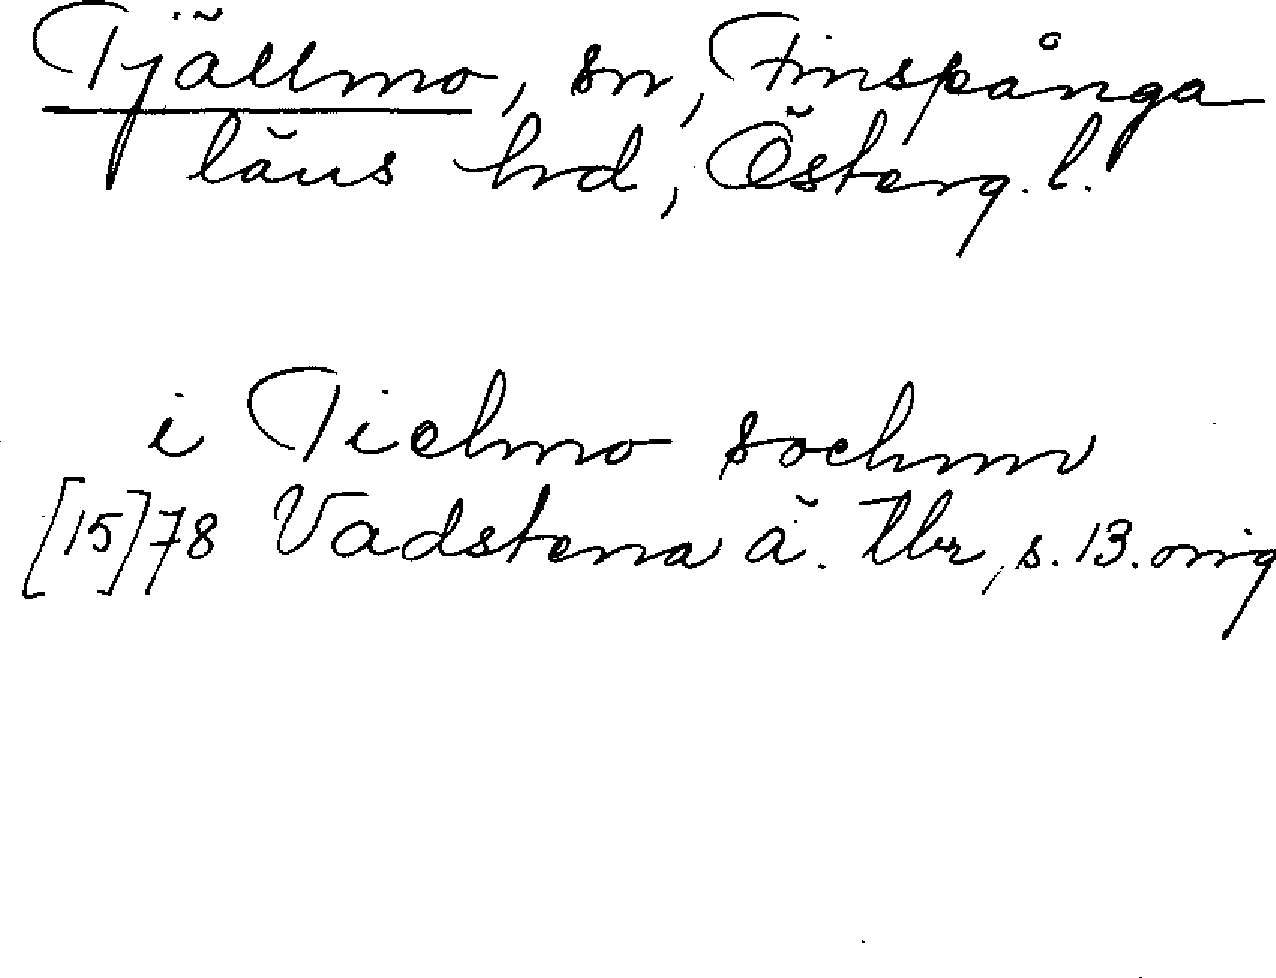 Tjällmo, sn, Finspånga
läns hrd, Österg. l.
i Tielmo sochnn
[15]78 Vadstena ä. Tbr, s. 13. orig